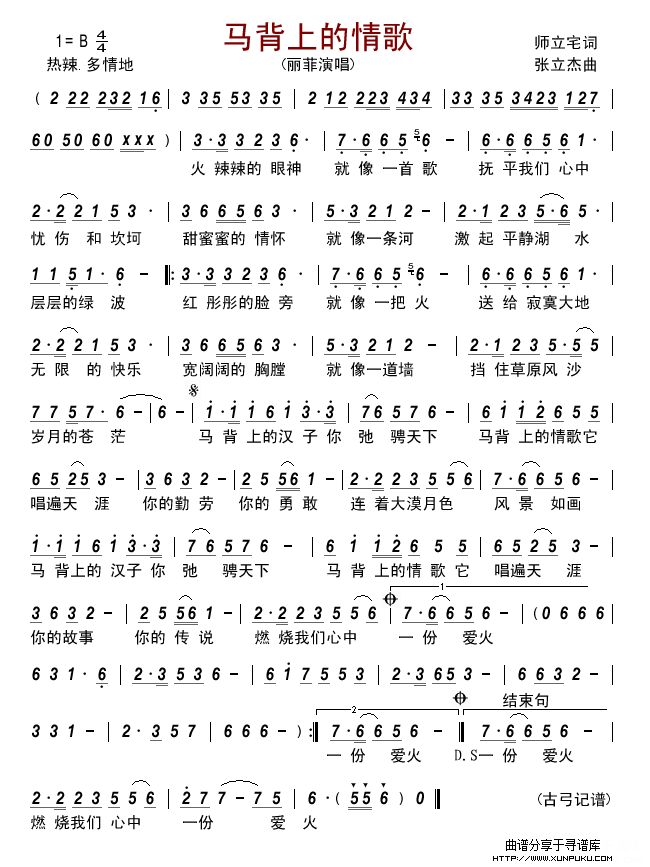 马背上的情歌
1=B 4/4 师立宅词
热辣.多情地 (丽菲演唱) 张立杰曲
( 2 22 232 16 | 3 35 53 35 | 2 12 223 434 | 33 35 3423 127 |
60 50 60 xxx ) | 3·3 3 2 3 6· | 7·6 6 5 56 – | 6·6 6 5 6 1· |
火 辣辣的 眼神 就 像 一首 歌 抚 平我们 心中
2·2 2 1 5 3· | 3 6 6 5 6 3· | 5·3 2 1 2 – | 2·1 2 3 5·6 5· |
忧 伤 和 坎坷 甜蜜蜜的 情怀 就 像一条河 激 起 平静湖 水
1 1 5 1·6 – |: 3·3 3 2 3 6· | 7·6 6 5 56 – | 6·6 6 5 6 1· |
层层的绿 波 红 彤彤的脸 旁 就 像 一把 火 送 给 寂寞大地
2·2 2 1 5 3· | 3 6 6 5 6 3· | 5·3 2 1 2 – | 2·1 2 3 5·5 5 |
无 限 的 快乐 宽阔阔的 胸膛 就 像一道墙 挡 住草原风 沙
7 7 5 7·6 – | 6 – | 1·1 1 6 1 3·3 | 7 6 5 7 6 – | 6 1 1 2 6 5 5 |
岁月的苍 茫 马 背 上的汉 子 你 弛 骋天下 马背 上的情歌它
6 5 2 5 3 – | 3 6 3 2 – | 2 5 5 6 1 – | 2·2 2 3 5 5 6 | 6 5 2 5 3 – |
唱遍天 涯 你的勤 劳 你的 勇 敢 连 着大漠月色 风 景 如画
1·1 1 6 1 3·3 | 7 6 5 7 6 – | 6 1 1 2 6 5 5 | 6 5 2 5 3 – |
马 背上的 汉子 你 弛 骋天下 马 背 上的情 歌 它 唱遍天 涯
1
3 6 3 2 – | 2 5 5 6 1 – | 2·2 2 3 5 5 6 | 7·6 6 5 6 – | (0 6 6 6 |
你的故事 你的 传 说 燃 烧我们心中 一 份 爱火
6 3 1·6 | 2·3 5 3 6 – | 6 1 7 5 5 3 | 2·3 6 5 3 – | 6 6 3 2 – |
2 结束句
3 3 1 – | 2·3 5 7 | 6 6 6 – ) :| 7·6 6 5 6 – :| 7·6 6 5 6 – |
一份 爱火 D.S一份 爱火
2·2 2 3 5 5 6 | 2 7 7 – 7 5 | 6·( 5 5 6 ) 0 || (古弓记谱)
燃 烧我们 心中 一份 爱 火
曲谱分享于寻谱库
www.xunpuku.com